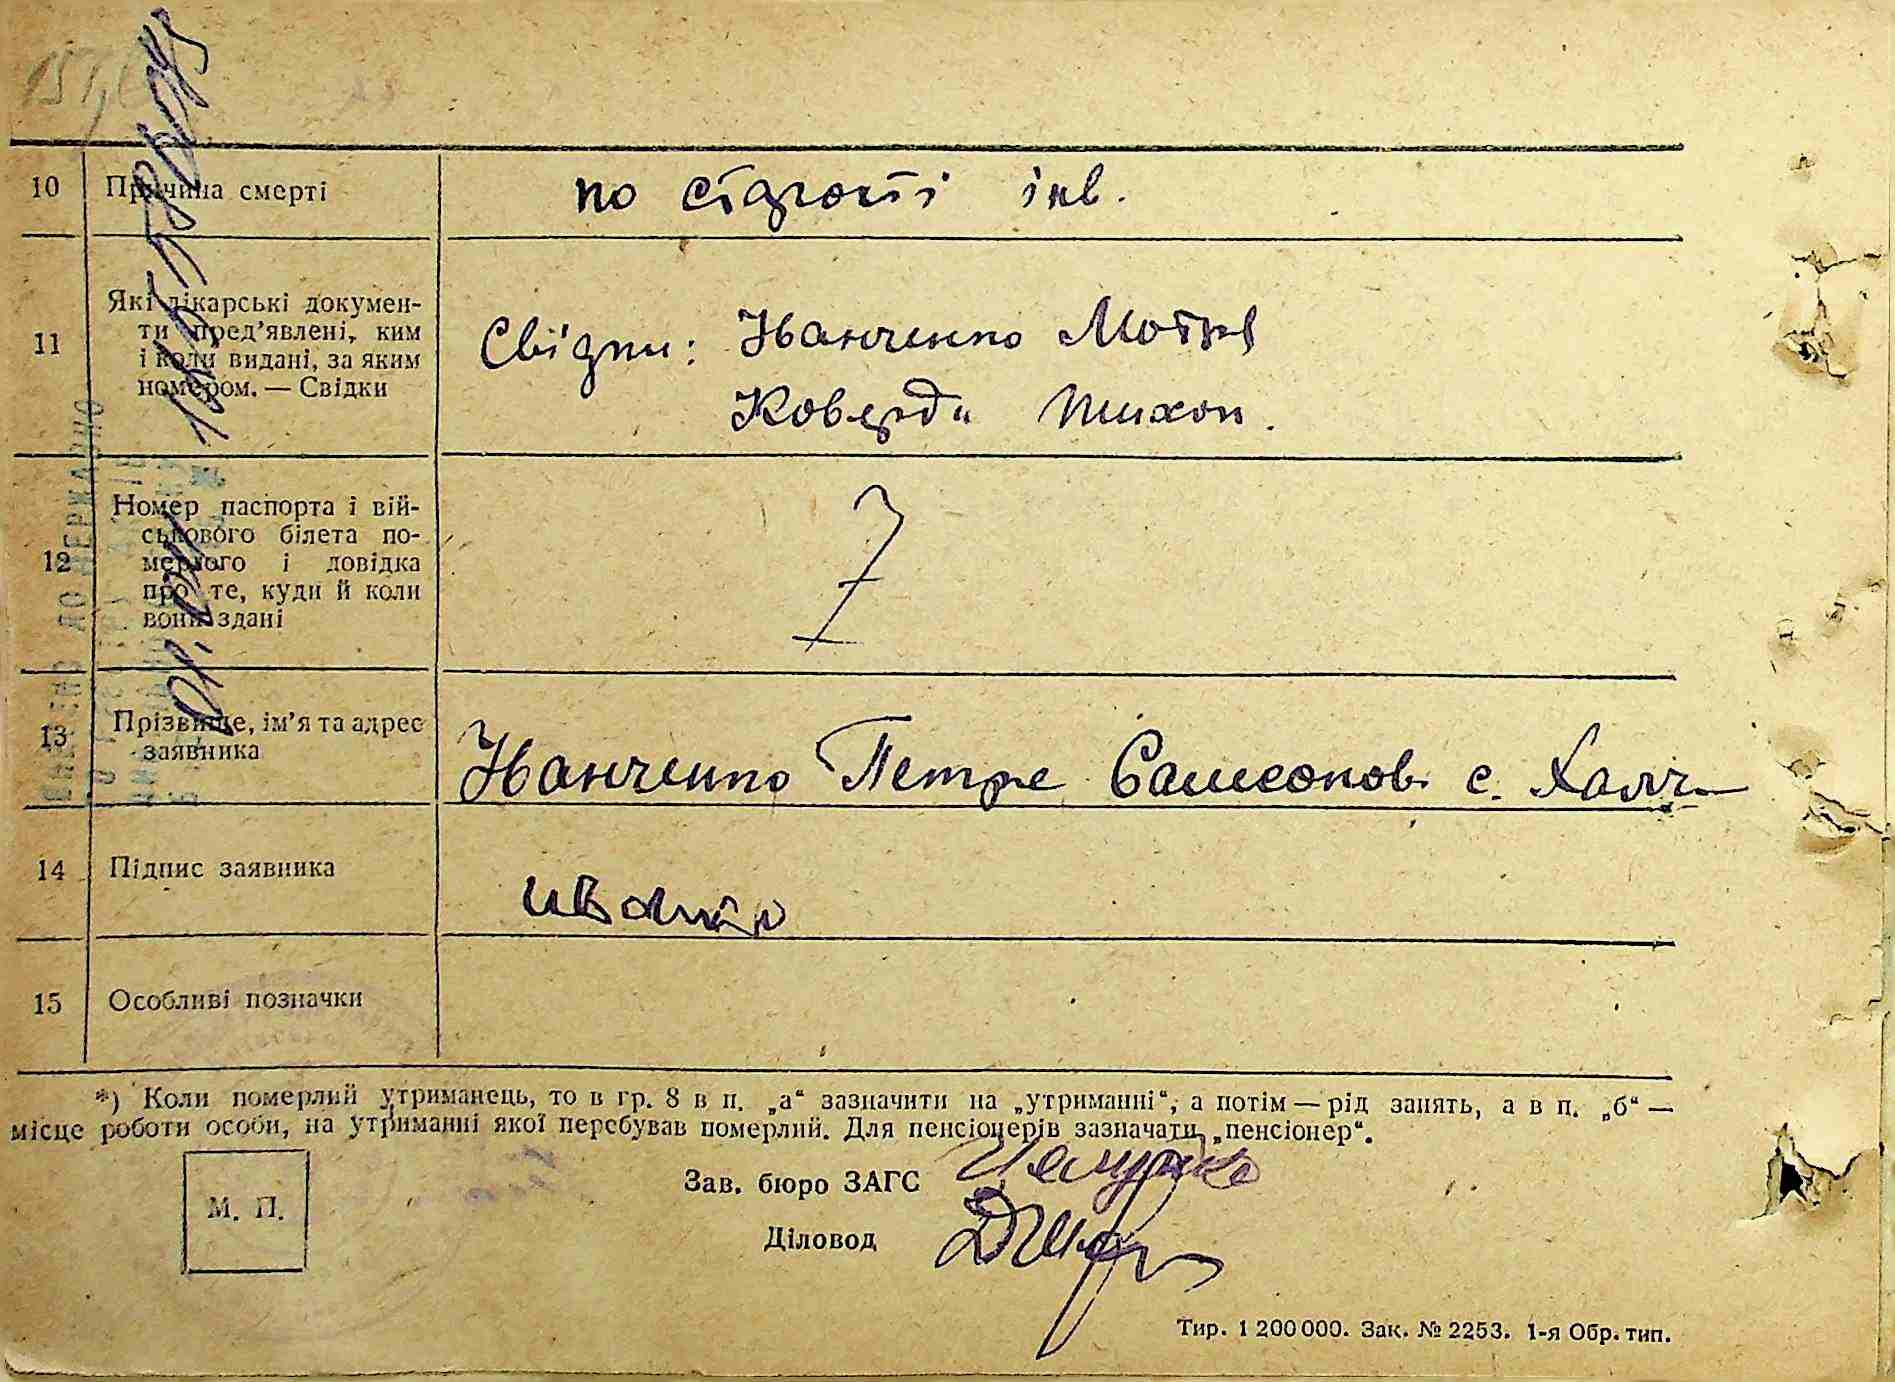 10 Причина смерті по старості інв.
11 Які лікарські докумен-
ти пред’явлені, ким
і коли видані, за яким
номером. — Свідки
Свідки: Иванченко Мотря
Коверда Тихон.
12 Номер паспорта і вій-
ськового білета по-
мерлого і довідка
про те, куди й коли
вони здані
13 Прізвище, ім’я та адрес
заявника
Иванченко Петре Самсонов. с. Халч
14 Підпис заявника
15 Особливі позначки
*) Коли померлий утриманець, то в гр. 8 в п. „а“ зазначити на „утриманні“, а потім — рід занять, а в п. „б“ —
місце роботи особи, на утриманні якої перебував померлий. Для пенсіонерів зазначати „пенсіонер“.
М. П.
Зав. бюро ЗАГС
Діловод
Тир. 1 200 000. Зак. № 2253. 1-я Обр. тип.